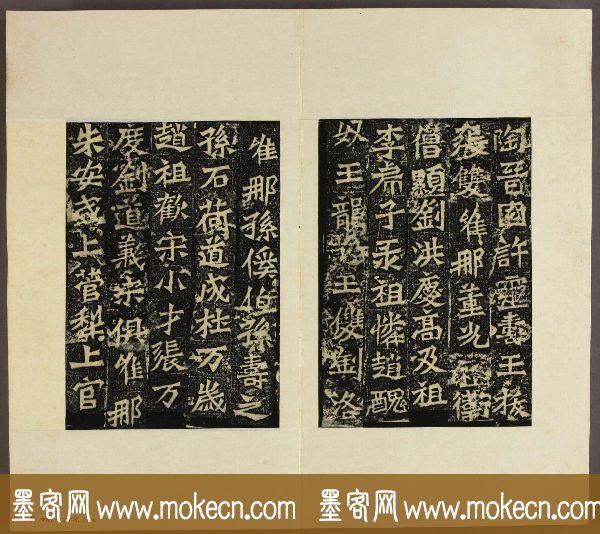 陶晉國許壽王
雙維那董光衛
僖顯劉洪慶髙及祖
李帚子汞祖憐趙醜
奴王龍王雙劉洛
維那孫俟伯孫壽之
孫石苟道成杜万歲
趙祖歡宋小才張万
度劉道義宋俱維那
朱安盛上官犁上官
墨客网 www.mokecn.com 墨客网 www.mokecn.com